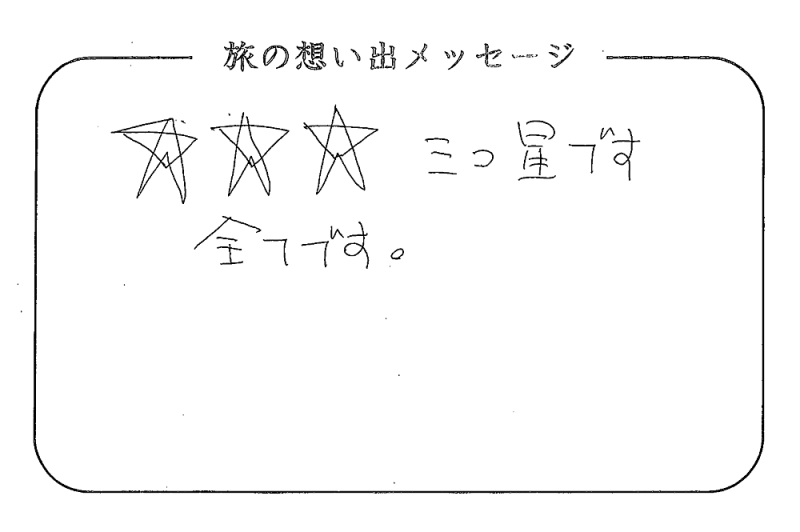 旅の想い出メッセージ
三つ星です
全てです。